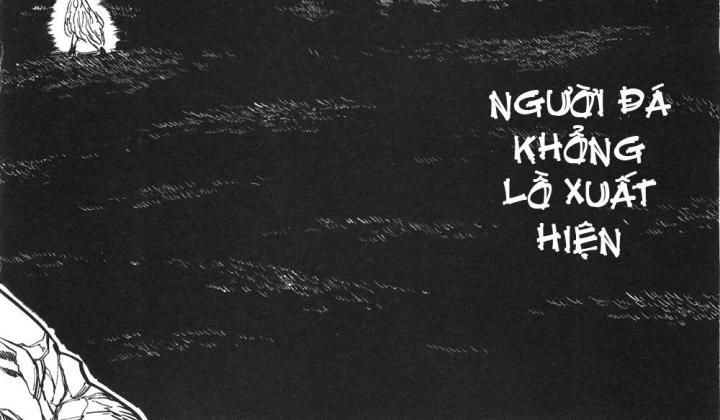 NGƯỜI ĐÁ
KHỔNG
LỒ XUẤT
HIỆN